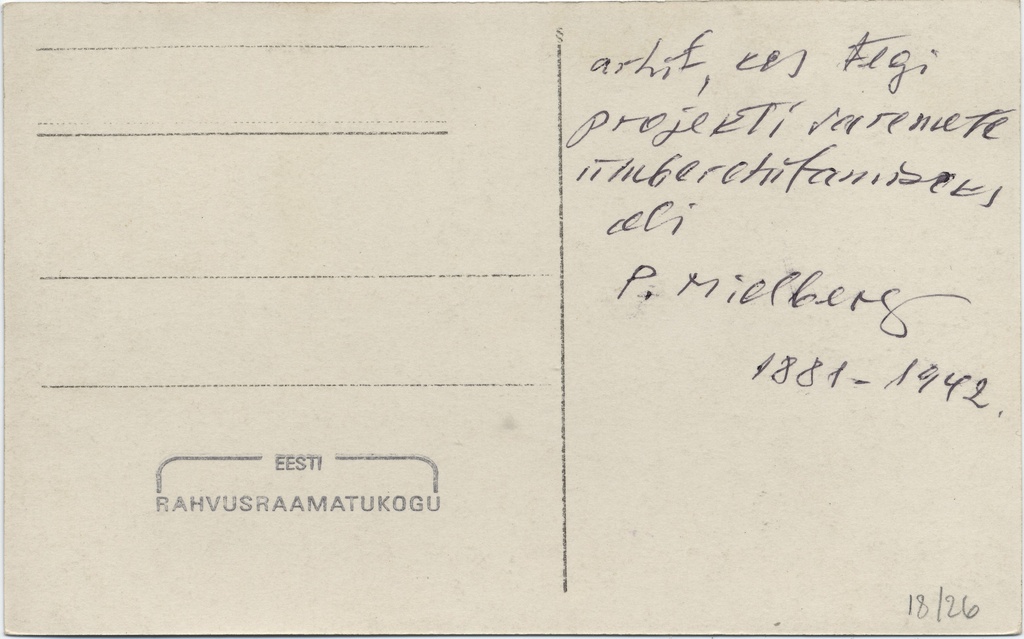 arhit, kes tegi
projekti varemete
ümberehitamiseks
oli
P. Mielberg
1881 - 1942.
EESTI
RAHVUSRAAMATUKOGU
18/26